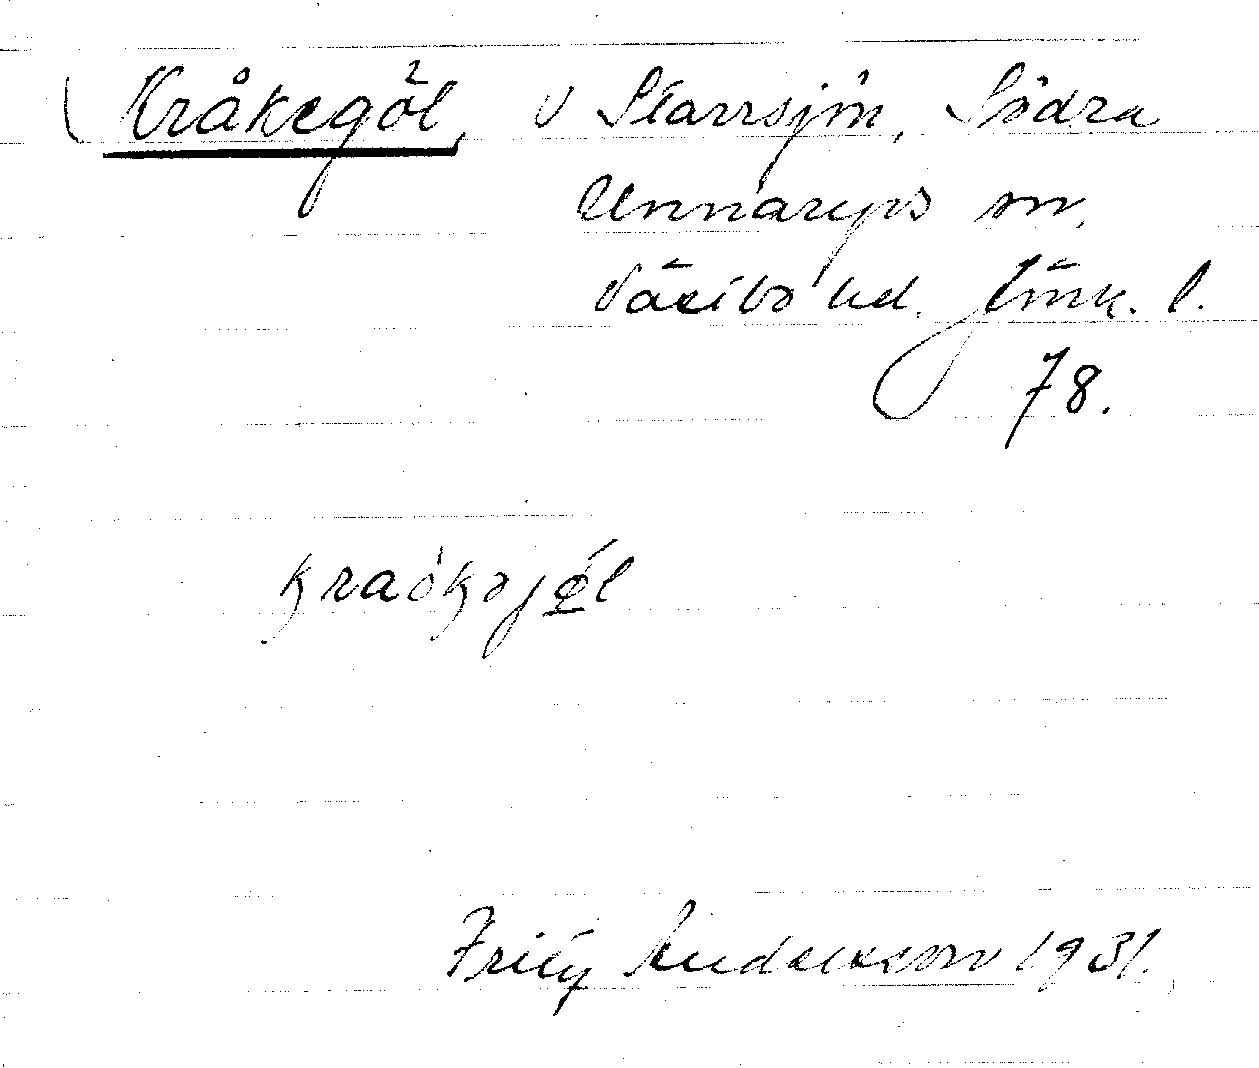 Kråkegöl, V Starrsjön, Södra
Unnaryds sn,
Västbo hd. Jönk. l.
78.
kraókəjǿ̱l
Fritz Andersson 1931.